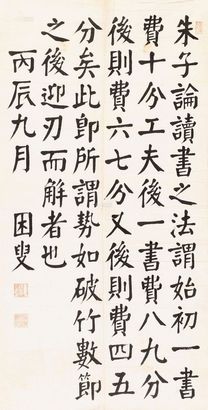 朱子論讀書之法謂始初一書
費十分工夫後一書費八九分
後則費六七分又後則費四五
分矣此卽所謂勢如破竹數節
之後迎刃而解者也
丙辰九月 困叟